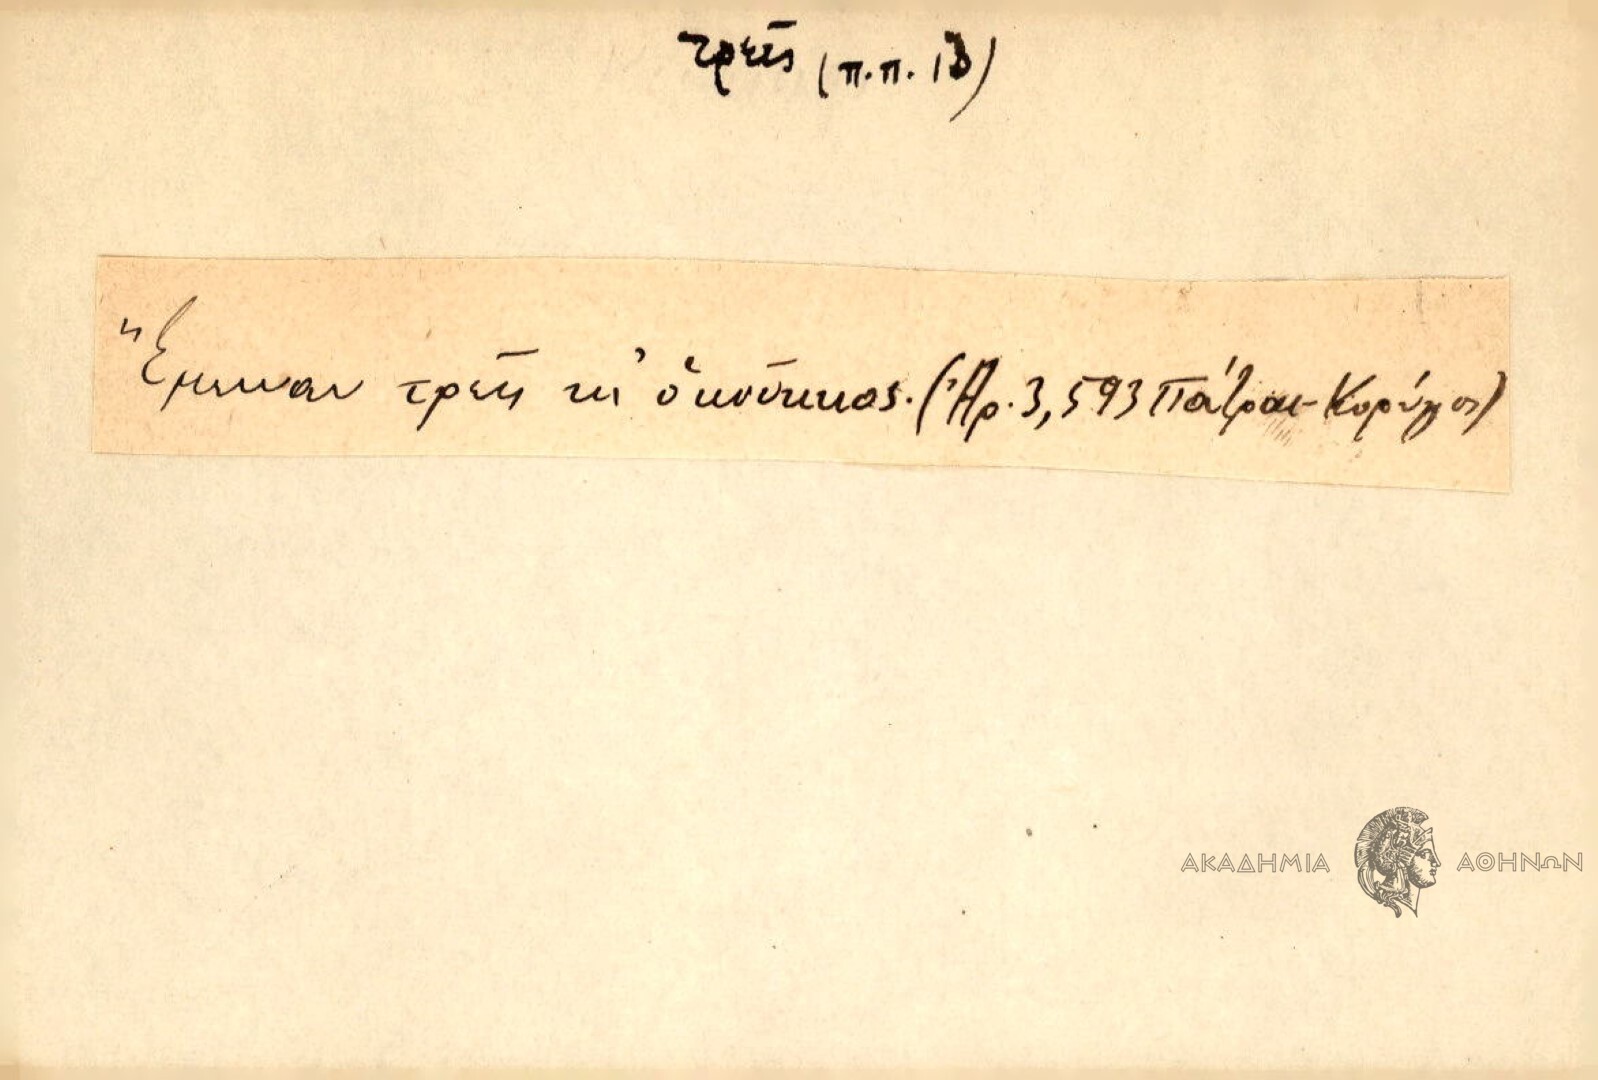 τρεῖς (π.π. 13)
Ἔμειναν τρεῖς κι' ὁ κοῦκκος. (Ἀρ. 3,593 Πάτραι - Κορύλος)
ΑΚΑΔΗΜΙΑ ΑΘΗΝΩΝ